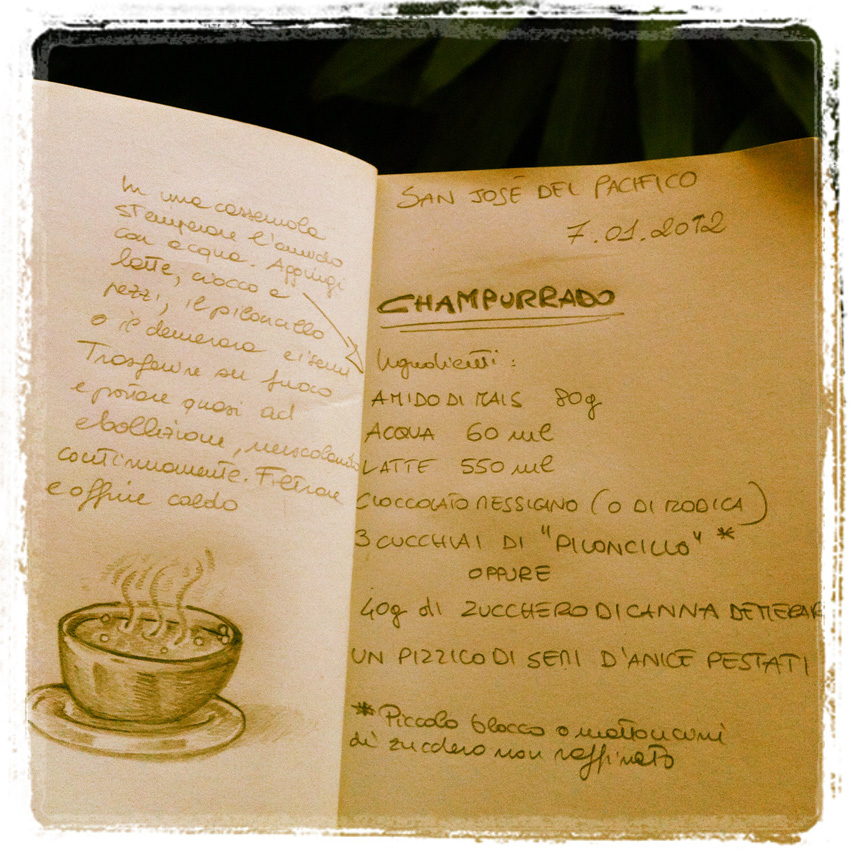 In una casseruola
stemperare l'amido
con acqua. Aggiungi
latte, ciocco a
pezzi, il piloncillo
o il demerara e i semi
Trasferire su fuoco
e portare quasi ad
ebollizione, mescolando
continuamente. Filtrare
e offrire caldo
SAN JOSÉ DEL PACIFICO
7.01.2012
CHAMPURRADO
Ingredienti:
AMIDO DI MAIS 80g
ACQUA 60 ml
LATTE 550 ml
CIOCCOLATO MESSICANO (O DI MODICA)
3 CUCCHIAI DI "PILONCILLO" *
OPPURE
40g di ZUCCHERO DI CANNA DEMERAR
UN PIZZICO DI SEMI D'ANICE PESTATI
* Piccolo blocco o mattoncini
di zucchero non raffinato